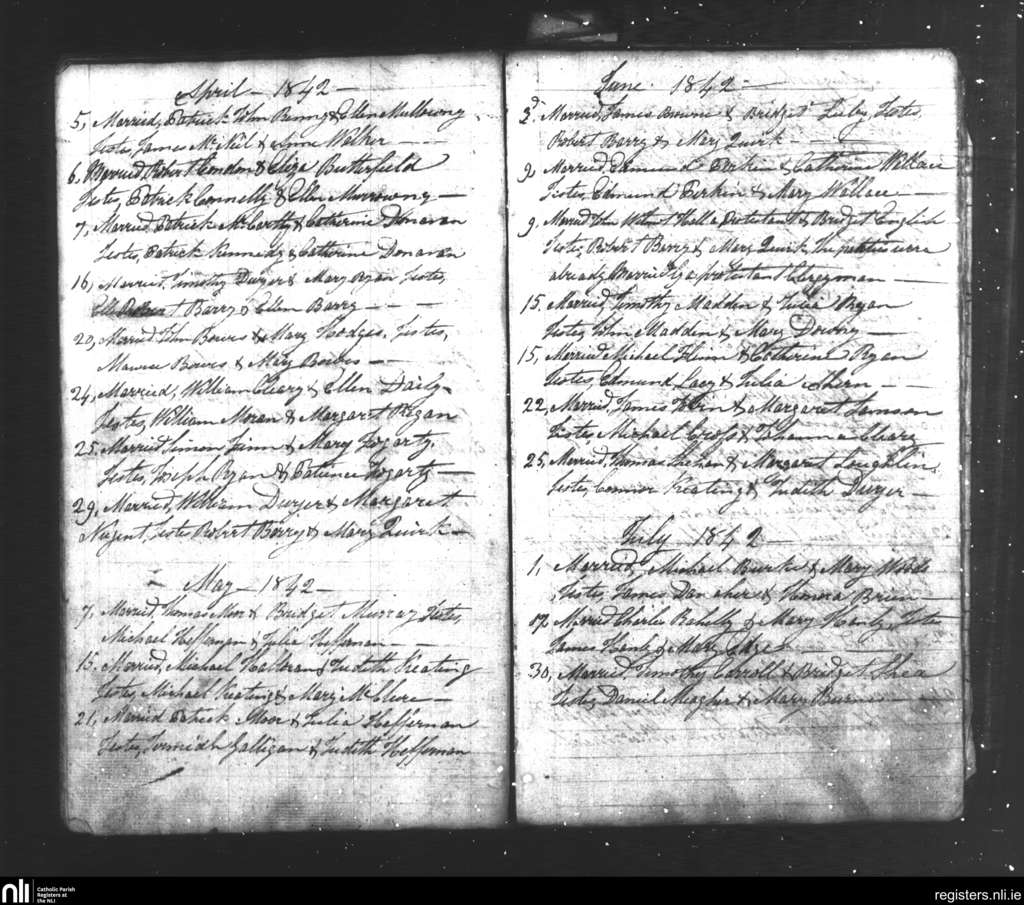 April - 1842 -
5, Married, Patrick John Benng & Ellen Mullowny
Testes, James McNeil & Anne Walker
6, Married Robert Condon & Eliza Butterfield
Testes, Patrick Connelly & Ellen Murrowny -
7, Married Patrick McCarthy & Catherine Donavan
Testes, Patrick Kennedy & Catherine Donavan
16, Married, Timothy Dwyer & Mary Ryan Testes,
Robert Barry & Ellen Barry - - -
20, Married John Bowes & Mary Hodges. Testes,
Bowes & Mary Bowes - -
24, Married, William Cleary & Ellen Daily -
Testes, William Moran & Margaret Regan
25. Married Simon Finn & Mary Fogarty,
Testes, Joseph Ryan & Patience Fogarty -
29, Married, William Dwyer & Margaret
Nugent, Testes Robert Barry & Mary Quirk -
- May - 1842 -
7, Married, Thomas Moor & Bridget Murray Testes,
Michael Heffernan & Julia Heffernan -
15. Married, Michael Halloran & Judith Keating
Testes, Michael Keating & Mary McClure -
21, Married Patrick Moor & Julia Heffernan
Testes, Jeremiah Galligan & Judith Heffernan
June. 1842 -
3d. Married, James Browne & Bridget Testes,
Robert Barry & Mary Quirk -
9, Married, Edmund & Catherine Wallace
Testes, Edmund & Mary Wallace -
9. Married John Hall a Protestant & Bridget English
Testes, Robert Barry & Mary Quirk, the parties were
already Married by a protestant Clergyman -
15. Married, Timothy Madden & Julia Ryan
Testes, John Madden & Mary Downy -
15, Married Michael Flinn & Catherine Ryan
Testes, Edmund Lacy & Julia Ahern -
22, Married, James & Margaret
Testes, Michael Cross & Johanna Cleary
25, Married, Thomas & Margaret Loughlin,
Testes, Connor Keating & Judith Dwyer -
July 1842 -
1, Married, Michael Burke & Mary Woods
Testes, James Danaher & Honora Brien -
17, Married Charles & Mary Hanly, Testes
James Hanly & Mary
30, Married, Timothy Carroll & Bridget Shea
Testes, Daniel Meagher & Mary Burns -
nli
Catholic Parish
Registers at
the NLI
registers.nli.ie